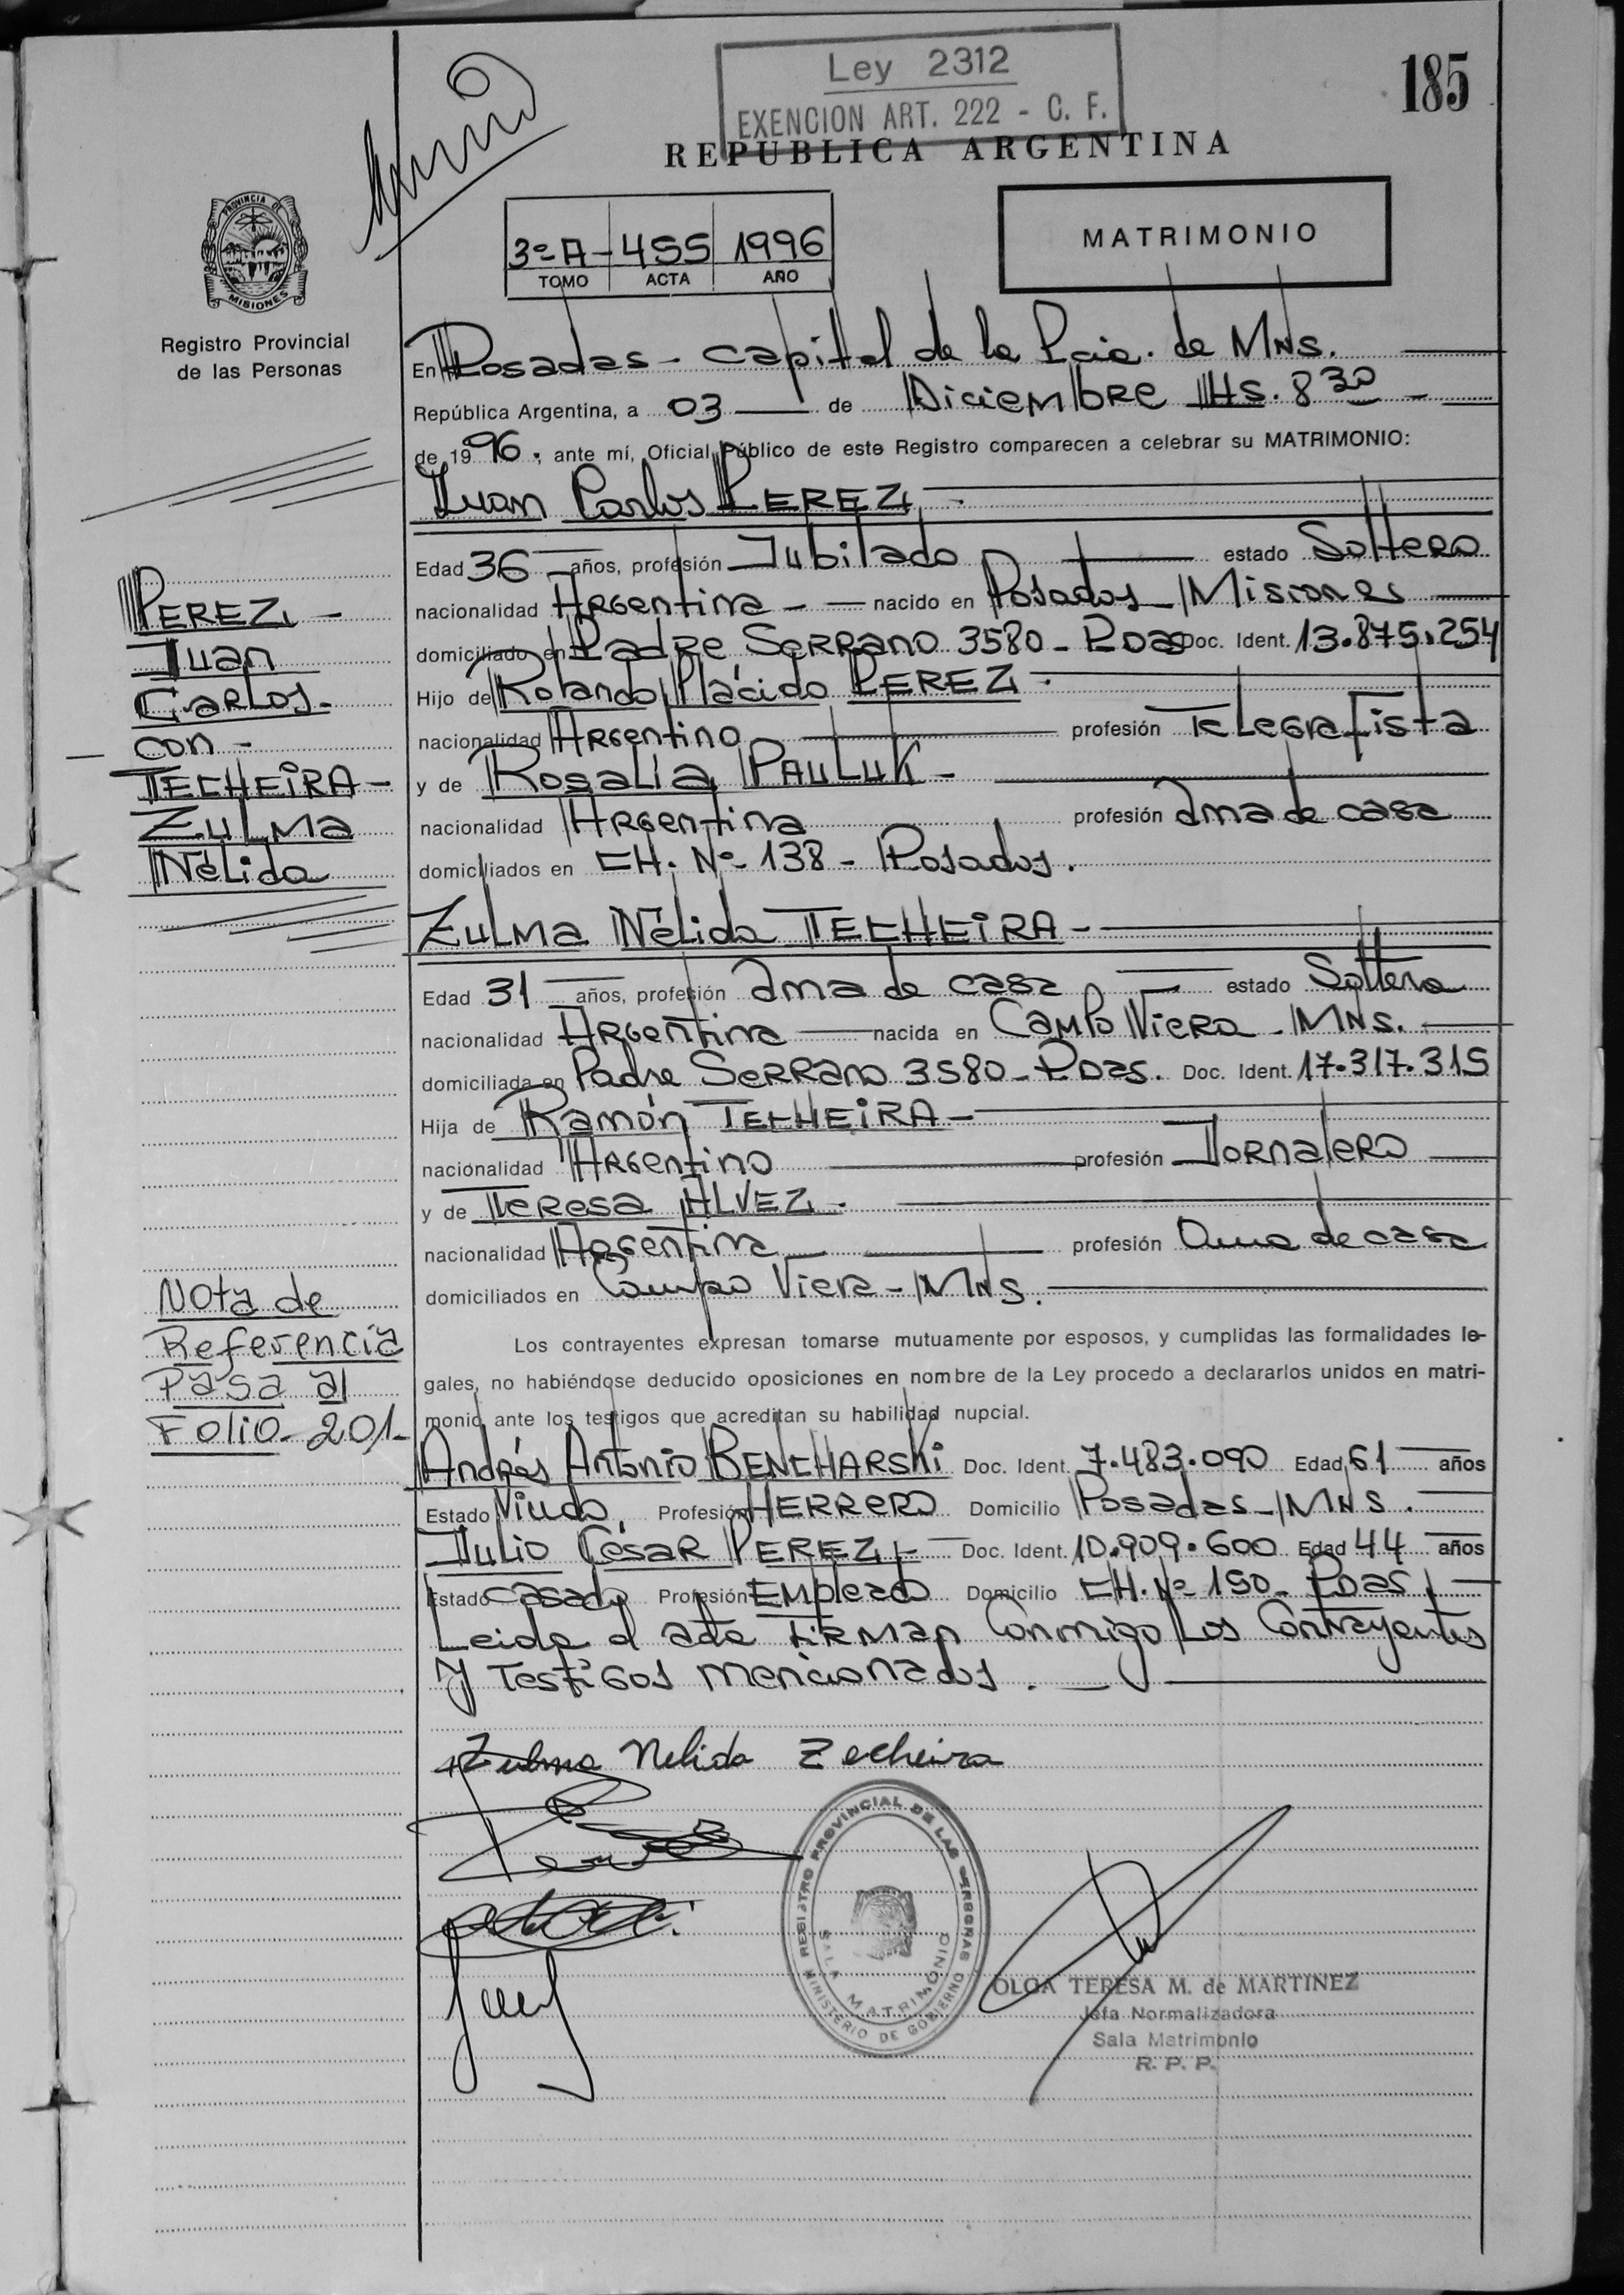 Ley 2312
EXENCION ART. 222 - C. F.
185
REPUBLICA ARGENTINA
PROVINCIA DE MISIONES
Registro Provincial
de las Personas
3º A - 455 1996
TOMO ACTA AÑO
MATRIMONIO
En Posadas - Capital de la Pcia. de Mns.
República Argentina, a 03 de Diciembre Hs. 8 30
de 1996, ante mí, Oficial Público de este Registro comparecen a celebrar su MATRIMONIO:
Juan Carlos PEREZ
Edad 36 años, profesión Jubilado estado Soltero
nacionalidad Argentina nacido en Posadas - Misiones
domiciliado en Padre Serrano 3580 - Pdas Doc. Ident. 13.875.254
Hijo de Rolando Plácido PEREZ
nacionalidad Argentino profesión Telegrafista
y de Rosalía PAULUK
nacionalidad Argentina profesión ama de casa
domiciliados en CH. Nº 138 - Posadas.
Zulma Nélida TECHEIRA
Edad 31 años, profesión ama de casa estado Soltera
nacionalidad Argentina nacida en Campo Viera - Mns.
domiciliada en Padre Serrano 3580 - Pdas. Doc. Ident. 17.317.315
Hija de Ramón TECHEIRA
nacionalidad Argentino profesión Jornalero
y de Teresa ALVEZ
nacionalidad Argentina profesión ama de casa
domiciliados en Campo Viera - Mns.
Los contrayentes expresan tomarse mutuamente por esposos, y cumplidas las formalidades le-
gales, no habiéndose deducido oposiciones en nombre de la Ley procedo a declararlos unidos en matri-
monio ante los testigos que acreditan su habilidad nupcial.
Andrés Antonio BENCHARSKI Doc. Ident. 7.483.090 Edad 61 años
Estado Viudo, Profesión HERRERO Domicilio Posadas - Mns.
Julio César PEREZ Doc. Ident. 10.909.600 Edad 44 años
Estado Casado Profesión Empleado Domicilio CH. Nº 150 - Pdas.
Leida el acta firman Conmigo Los Contrayentes
y Testigos mencionados.
PEREZ -
Juan
Carlos -
con -
TECHEIRA -
Zulma
Nélida
Nota de
Referencia
Pasa al
Folio - 201 -
Zulma Nelida Zecheira
REGISTRO PROVINCIAL DE LAS PERSONAS
MINISTERIO DE GOBIERNO
SALA MATRIMONIO
OLGA TERESA M. de MARTINEZ
Jefa Normalizadora
Sala Matrimonio
R. P. P.